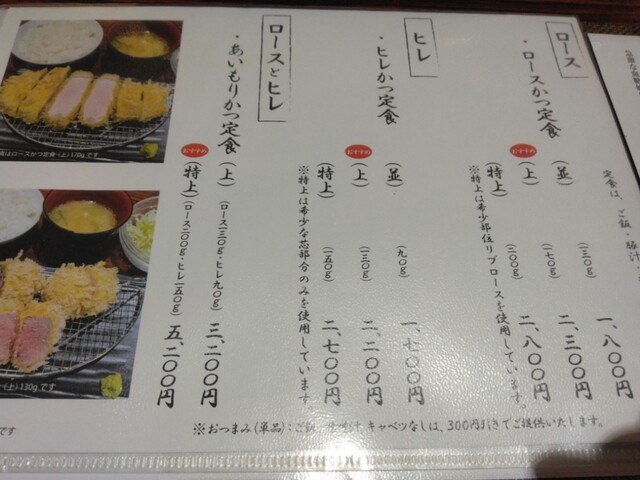 ロース
・ロースかつ定食
(並) (一三〇g) 一、八〇〇円
おすすめ (上) (一七〇g) 二、三〇〇円
(特上) (二〇〇g) 二、八〇〇円
※特上は希少部位リブロースを使用しています。
ヒレ
・ヒレかつ定食
(並) (九〇g) 一、七〇〇円
おすすめ (上) (一三〇g) 二、二〇〇円
(特上) (一五〇g) 二、七〇〇円
※特上は希少な芯部分のみを使用しています。
ロースとヒレ
・あいもりかつ定食
(上) (ロース一三〇g・ヒレ九〇g) 三、二〇〇円
おすすめ (特上) (ロース二〇〇g・ヒレ一五〇g) 五、二〇〇円
※おつまみ(単品):ご飯 キャベツなしは、300円引きでご提供いたします。
定食は、ご飯・豚汁
はロースかつ定食(上)170gです
(上)130gです
です